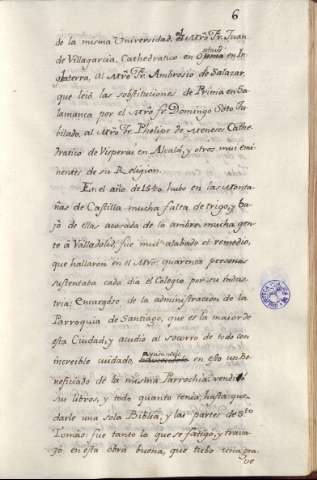 6
de la misma Universidad, al Mrõ Fr. Juan
de Villagarcia, Cathedratico en Oxonia en In-
glaterra, al Mrõ Fr. Ambrosio de Salazar,
que leiò las sobstituciones de Prima en Sa-
lamanca por el Mrõ fr. Domingo Soto Ju-
bilado, al Mrõ Fr. Phelipe de Meneses Cathe-
dratico de Visperas en Alcalà, y otros mui emi-
nentes de su Religion.
En el año de 1540. hubo en las Monta-
ñas de Castilla mucha falta de trigo, y ba-
jò de ellas acosada de la ambre mucha gen-
te à Valladolid, fue mui alabado el remedio,
que hallaron en el Mrõ: quarenta personas
sustentaba cada dia el Colegio por su indus-
tria: Encargòse de la administracion de la
Parroquia de Santiago, que es la maior de
esta Ciudad, y acudiò al socorro de todo con
increible cuidado, ayudandole en ello un Be-
neficiado de la misma Parrochia: vendiò
su libros, y todo quanto tenia, hasta que-
darle una sola Biblia, y las partes de Sto
Tomàs: fue tanto lo que se fatigò, y traba-
jò en esta obra buena, que tubo una gra-
ve